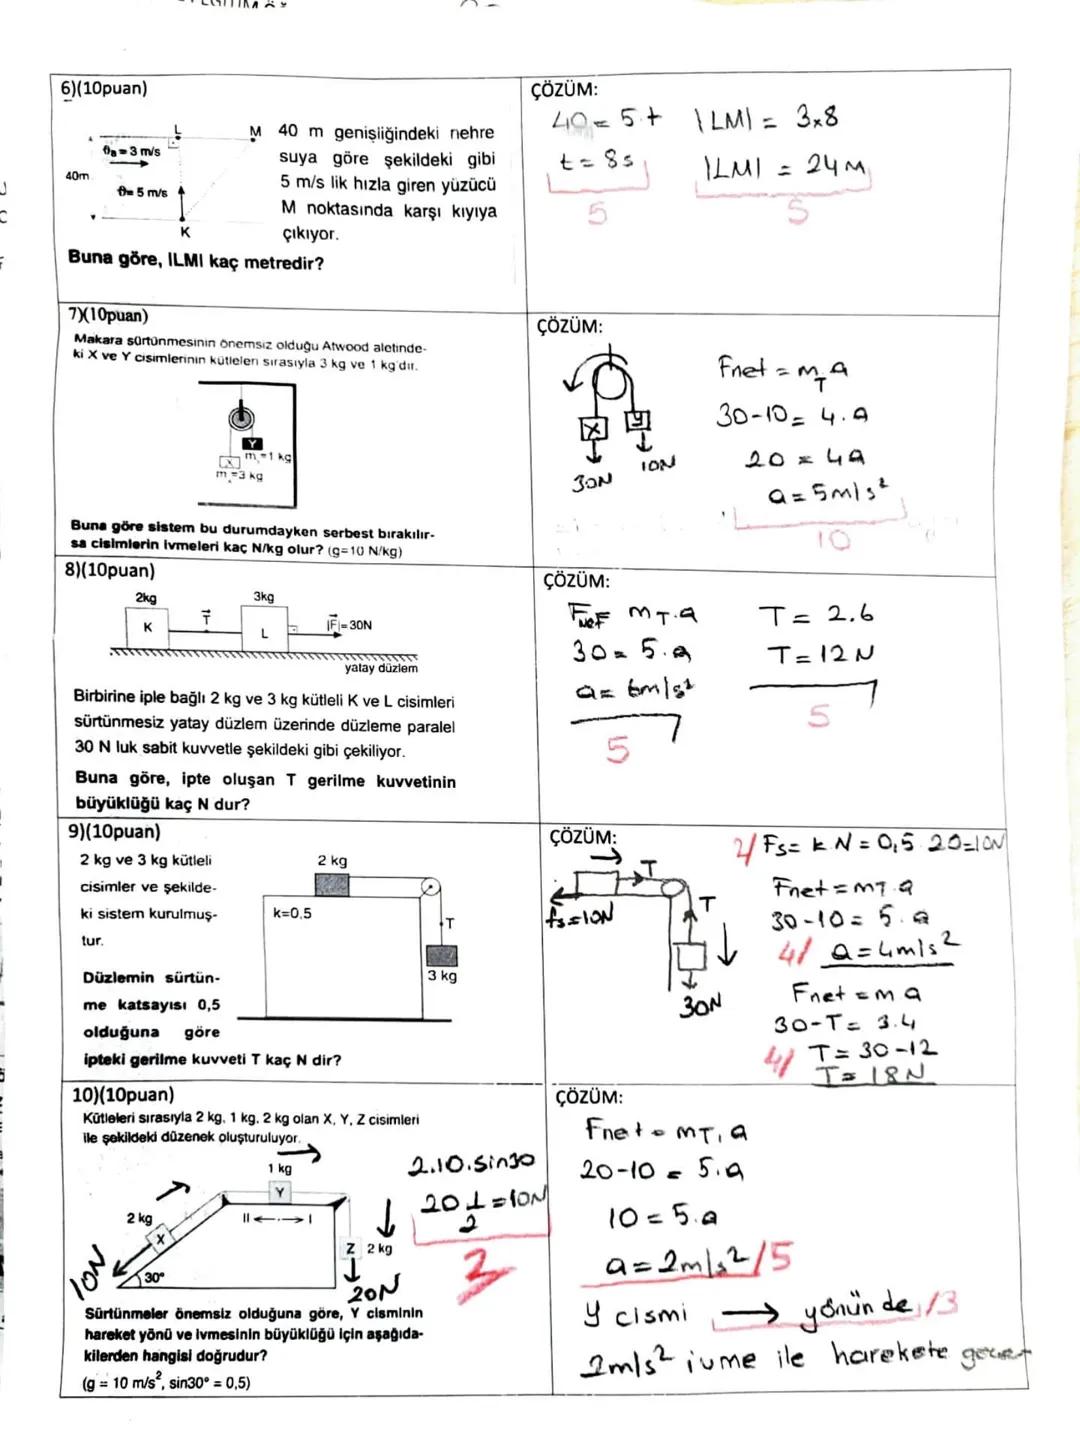 6)(10puan)
L
M
ϑₐ = 3 m/s
40m
ϑ= 5 m/s
K
40 m genişliğindeki nehre
suya göre şekildeki gibi
5 m/s lik hızla giren yüzücü
M noktasında karşı kıyıya
çıkıyor.
Buna göre, ILMI kaç metredir?
ÇÖZÜM:
40 = 5.t
t = 8s
5
|LM| = 3x8
|LM| = 24 M
5
7)(10puan)
Makara sürtünmesinin önemsiz olduğu Atwood aletinde-
ki X ve Y cisimlerinin kütleleri sırasıyla 3 kg ve 1 kg'dır.
Y
m =1 kg
X
m =3 kg
Buna göre sistem bu durumdayken serbest bırakılır-
sa cisimlerin ivmeleri kaç N/kg olur? (g=10 N/kg)
ÇÖZÜM:
X
y
30N
10N
Fnet = m_T a
30-10 = 4.a
20 = 4a
a = 5m/s²
10
8)(10puan)
2kg
3kg
K
T
L
|F|= 30N
yatay düzlem
Birbirine iple bağlı 2 kg ve 3 kg kütleli K ve L cisimleri
sürtünmesiz yatay düzlem üzerinde düzleme paralel
30 N luk sabit kuvvetle şekildeki gibi çekiliyor.
Buna göre, ipte oluşan T gerilme kuvvetinin
büyüklüğü kaç N dur?
ÇÖZÜM:
Fnet m_T.a
30 = 5.a
a = 6m/s²
5
T = 2.6
T = 12N
5
9)(10puan)
2 kg ve 3 kg kütleli
cisimler ve şekilde-
ki sistem kurulmuş-
tur.
Düzlemin sürtün-
me katsayısı 0,5
olduğuna göre
ipteki gerilme kuvveti T kaç N dir?
2 kg
k=0,5
T
3 kg
ÇÖZÜM:
T
fs=10N
T
30N
2/ Fs= k N = 0,5 20=10N
Fnet = m_T.a
30-10 = 5.a
4/ a = 4m/s²
Fnet = m a
30-T = 3.4
4/ T = 30-12
T = 18N
10)(10puan)
Kütleleri sırasıyla 2 kg, 1 kg, 2 kg olan X, Y, Z cisimleri
ile şekildeki düzenek oluşturuluyor.
1 kg
Y
2 kg
X
II ← → I
Z 2 kg
30°
10N
20N
2.10.sin30
20 1/2 = 10N
2
Sürtünmeler önemsiz olduğuna göre, Y cisminin
hareket yönü ve ivmesinin büyüklüğü için aşağıda-
kilerden hangisi doğrudur?
(g = 10 m/s², sin30° = 0,5)
ÇÖZÜM:
Fnet = m_T.a
20-10 = 5.a
10 = 5.a
a = 2m/s² /5
y cismi → yönünde /3
2m/s² ivme ile harekete geçer